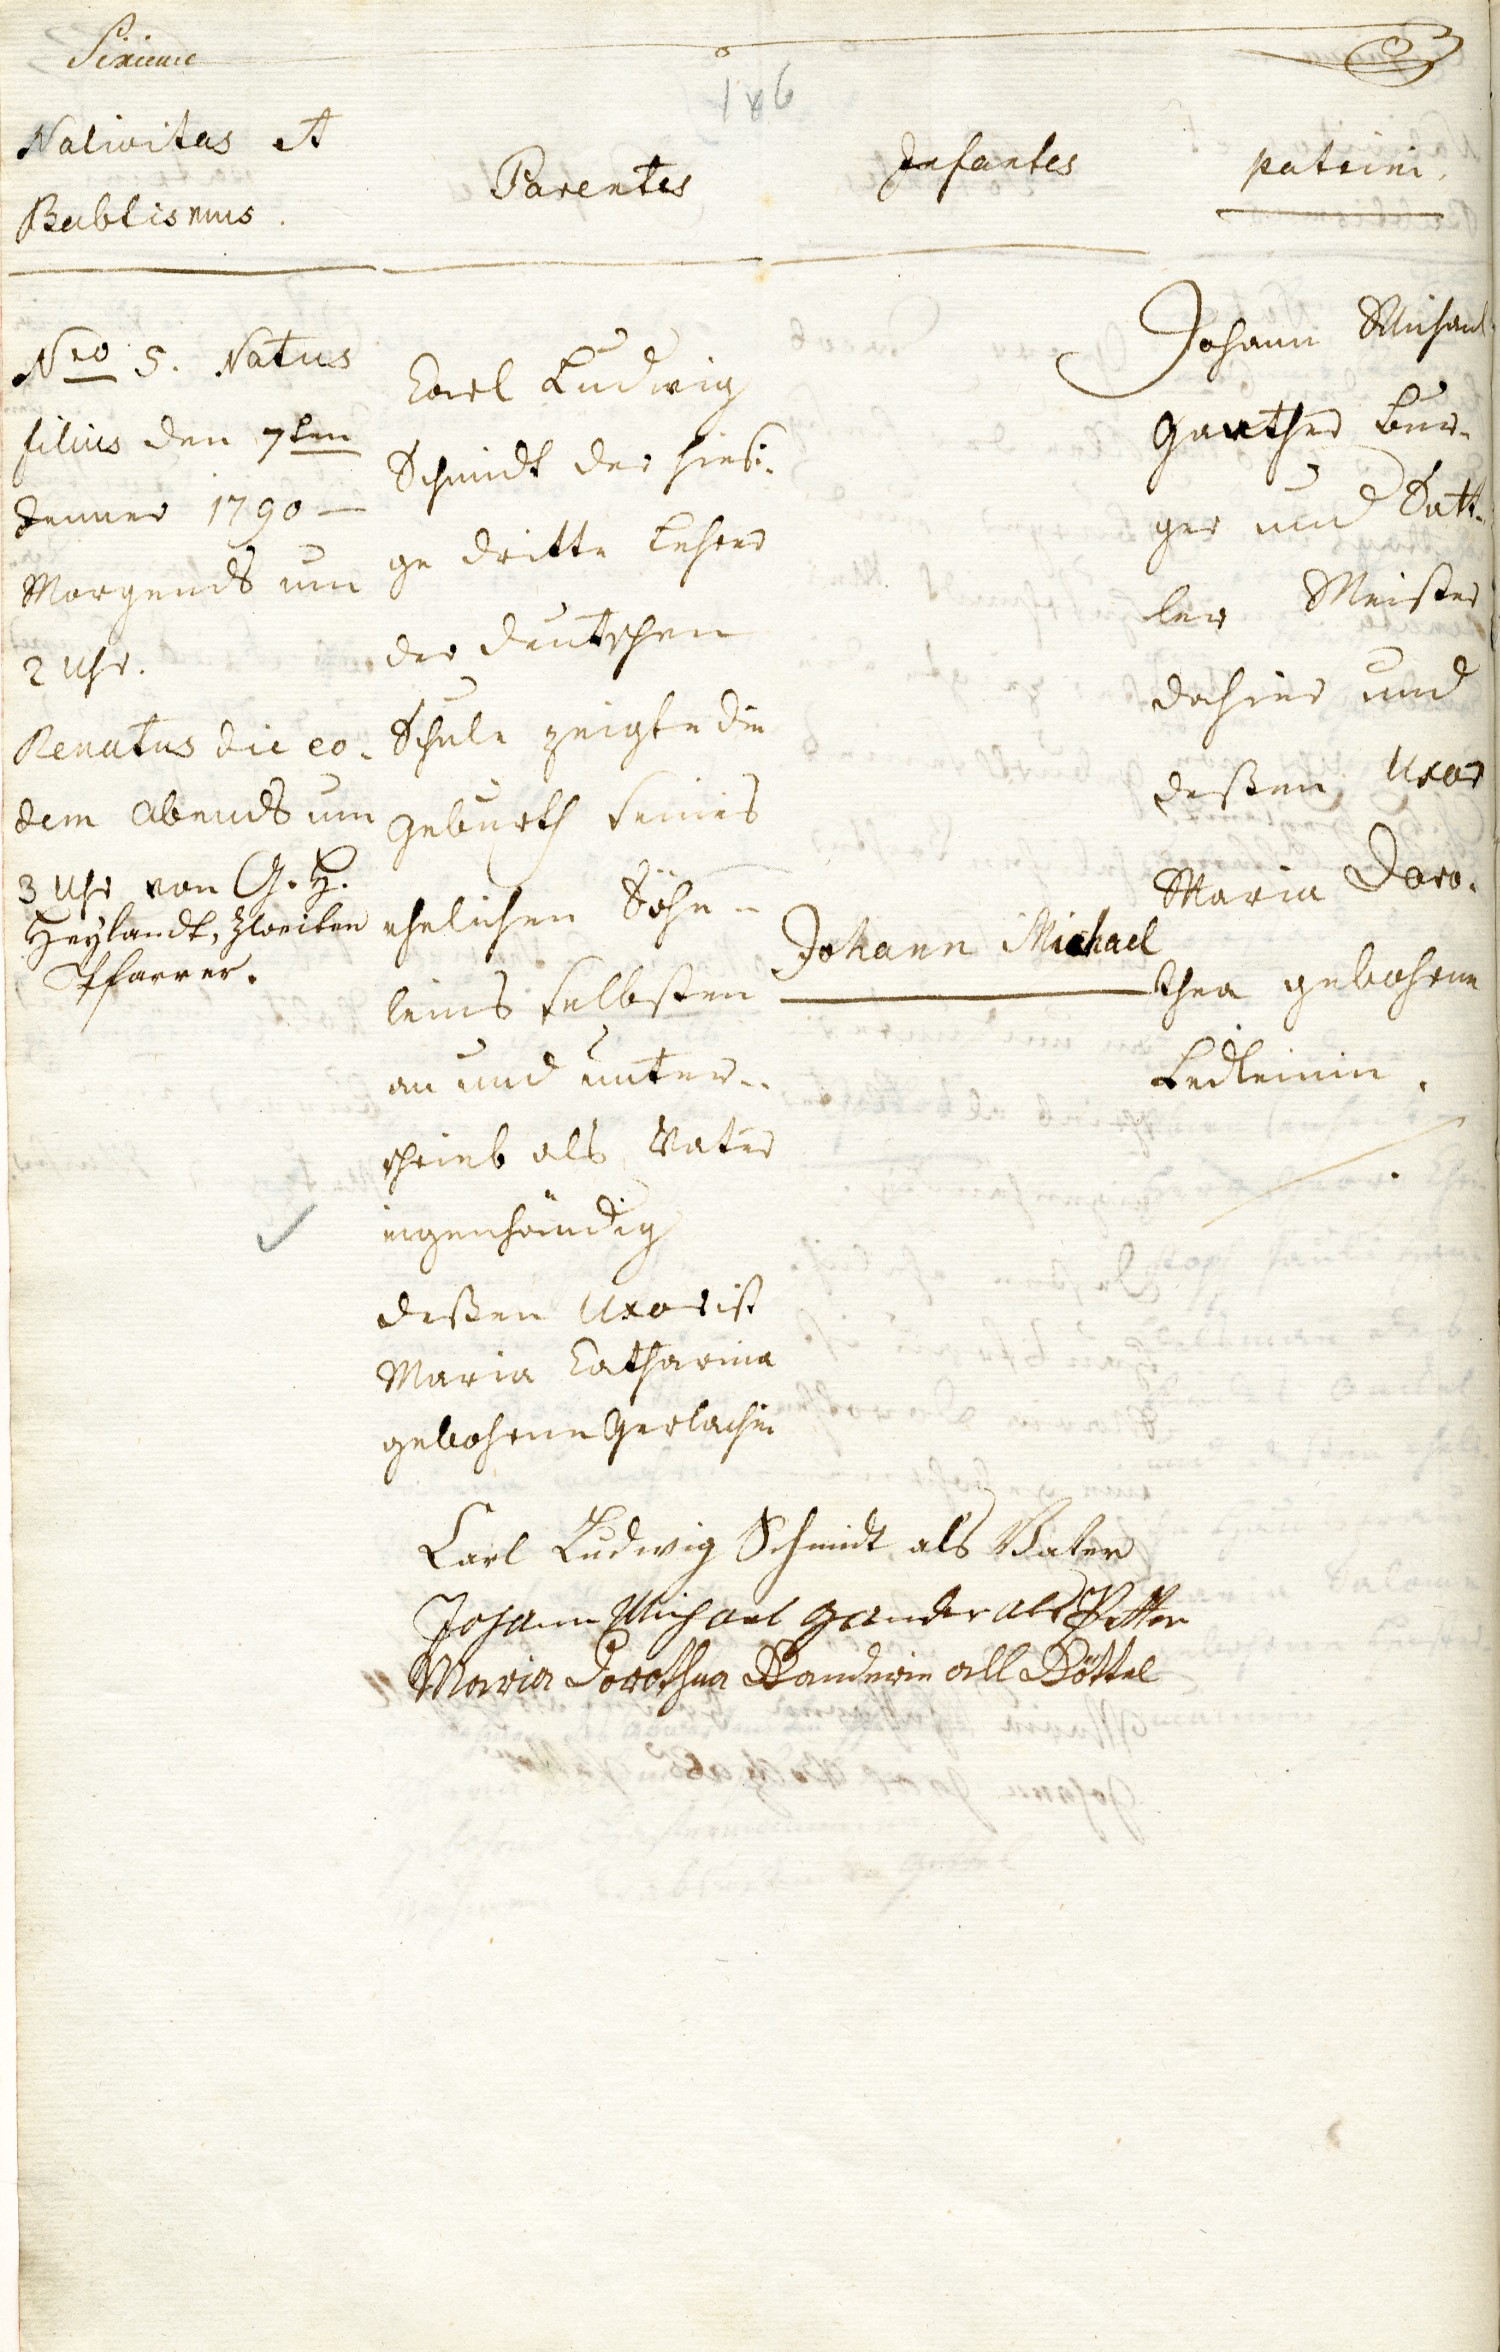 186
Nativitas et
Babtismus.
Parentes
Infantes
patrini.
Nro 5. Natus
filius den 7ten
Jenner 1790 —
Morgends um
2 Uhr.
Renatus die eo-
dem Abends um
3 Uhr von G. H.
Heylandt, zweiten
Pfarrer.
Carl Ludwig
Schmidt der hiesi-
ge dritte Lehrer
der deutschen
Schule zeigte die
Geburth seines
ehelichen Söhn-
leins selbsten
an und unter-
schrieb als Vater
eigenhändig
deßen Uxor ist
Maria Catharina
gebohrne Gerlachin
Johann Michael
Johann Michael
Bur-
ger und Satt-
ler Meister
dahier und
deßen Uxor
Maria Doro-
thea gebohrne
Ledleinin.
Carl Ludwig Schmidt als Vater
Johann Michael Gander als Petter
Maria Dorothea Ganderin all Göttel